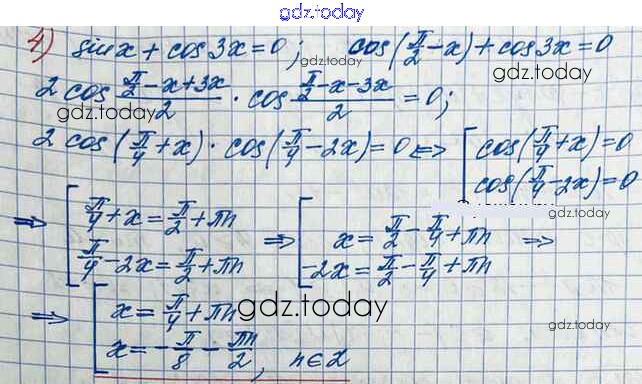 gdz.today
4) sinx + cos3x = 0; cos(π/2 - x) + cos3x = 0
gdz.today
gdz.today
2 cos (π/2 - x + 3x)/2 · cos (π/2 - x - 3x)/2 = 0;
gdz.today
2 cos(π/4 + x) · cos(π/4 - 2x) = 0 <=> [ cos(π/4 + x) = 0
cos(π/4 - 2x) = 0
gdz.today
=> [ π/4 + x = π/2 + πn
π/4 - 2x = π/2 + πn
=> [ x = π/2 - π/4 + πn
-2x = π/2 - π/4 + πn =>
=> [ x = π/4 + πn
x = -π/8 - πn/2, n∈Z
gdz.today
gdz.today